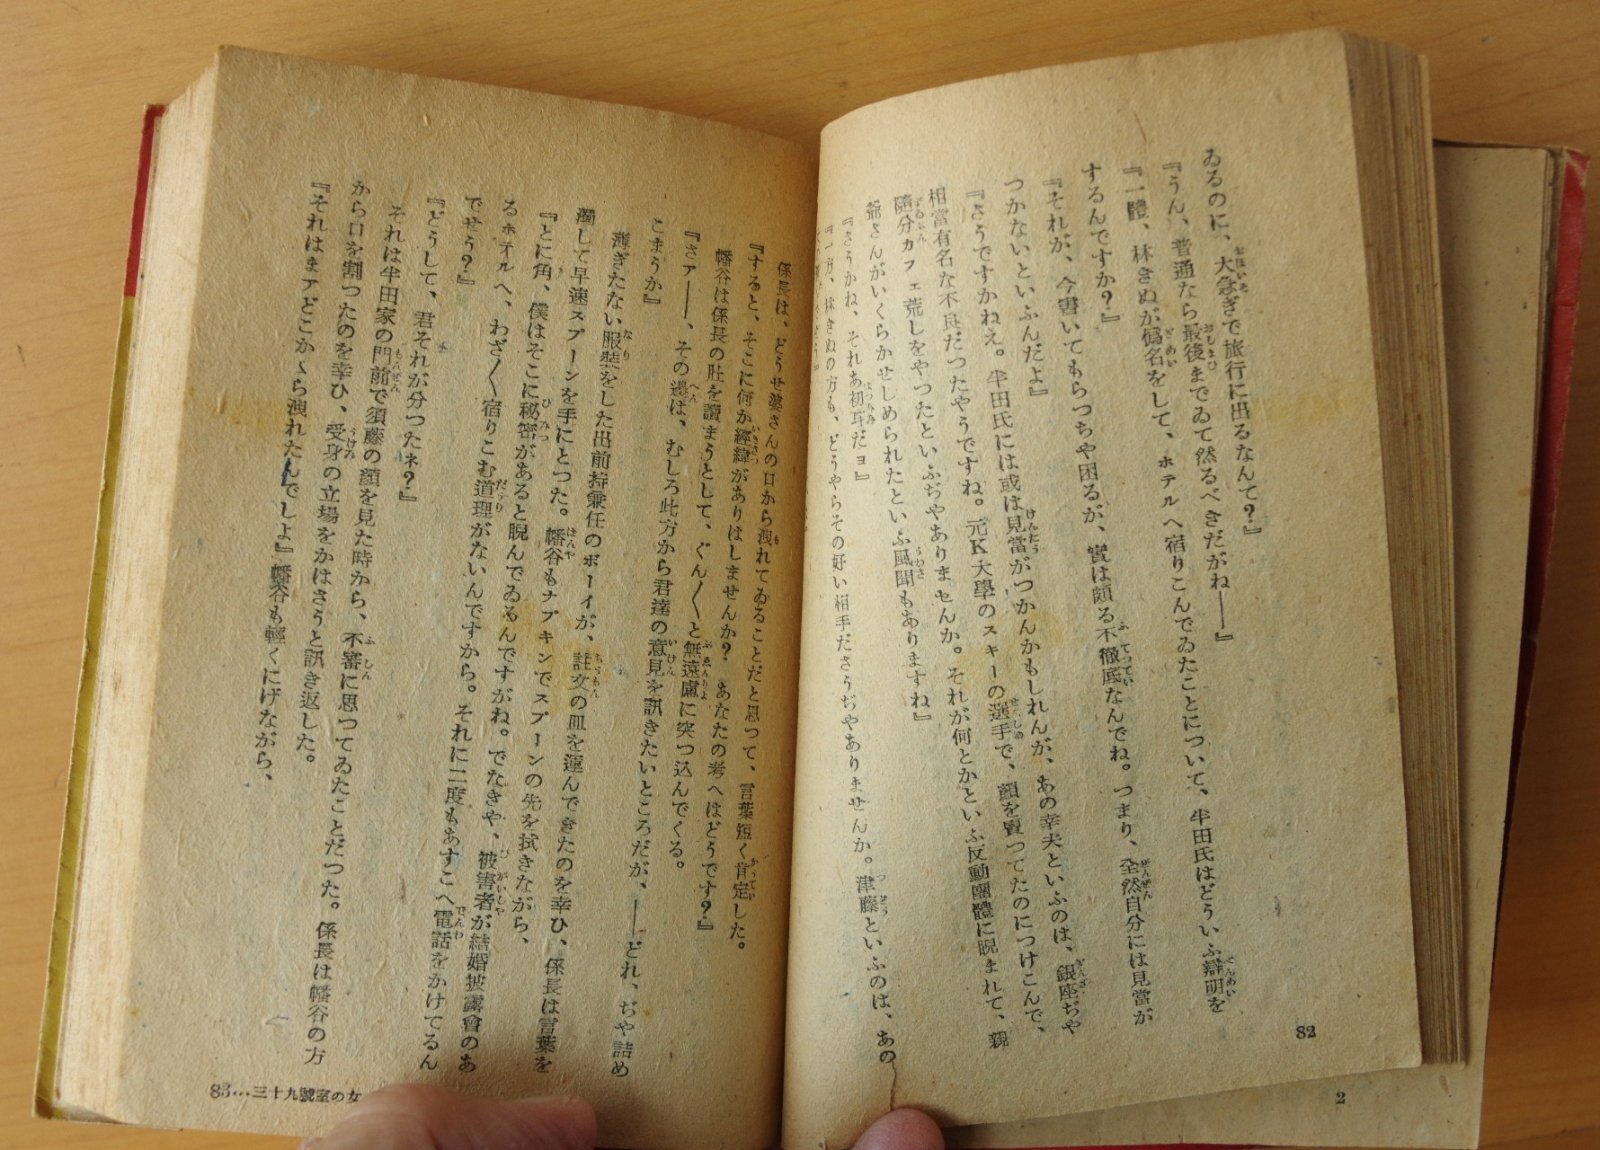 ゐるのに、大急ぎで旅行に出るなんて?』
『うん、普通なら最後までゐて然るべきだがね――』
『一體、林きぬが僞名をして、ホテルへ宿りこんでゐたことについて、半田氏はどういふ辯明を
するんですか?』
『それが、今書いてもらつちや困るが、實は頗る不徹底なんでね。つまり、全然自分には見當が
つかないといふんだよ』
『さうですかねえ。半田氏には或は見當がつかんかもしれんが、あの幸夫といふのは、銀座ぢや
相當有名な不良だつたやうですね。元K大學のスキーの選手で、顔を賣つてたのにつけこんで、
隨分カフェ荒しをやつたといふぢやありませんか。それが何とかといふ反動團體に睨まれて、親
爺さんがいくらかせしめられたといふ風聞もありますね』
『さうかね、それあ初耳だヨ』
『一方、林きぬの方も、どうやらその好い相手ださうぢやありませんか。津藤といふのは、あの
82
係長は、どうせ婆さんの口から洩れてゐることだと思つて、言葉短く肯定した。
『すると、そこに何か經緯がありはしませんか? あなたの考へはどうです?』
幡谷は係長の肚を讀まうとして、ぐん〱と無遠慮に突つ込んでくる。
『さアー―、その邊は、むしろ此方から君達の意見を訊きたいところだが、――どれ、ぢや詰め
こまうか』
薄ぎたない服裝をした出前持兼任のボーイが、註文の皿を運んできたのを幸ひ、係長は言葉を
濁して早速スプーンを手にとつた。幡谷もナプキンでスプーンの先を拭きながら、
『とに角、僕はそこに秘密があると睨んでゐるんですがね。でなきや、被害者が結婚披露會のあ
るホテルへ、わざ〱宿りこむ道理がないんですから。それに二度もあすこへ電話をかけてるん
でせう?』
『どうして、君それが分つたネ?』
それは半田家の門前で須藤の顔を見た時から、不審に思つてゐたことだつた。係長は幡谷の方
から口を割つたのを幸ひ、受身の立場をかはさうと訊き返した。
『それはまアどこかゝら洩れたんでしよ』幡谷も輕くにげながら、
83…三十九號室の女
2